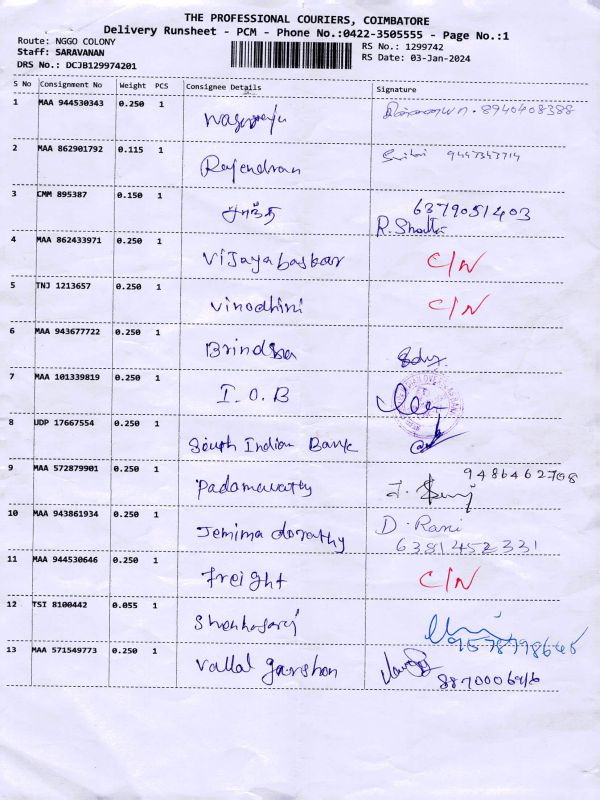 THE PROFESSIONAL COURIERS, COIMBATORE
Delivery Runsheet - PCM - Phone No.:0422-3505555 - Page No.:1
Route: NGGO COLONY
Staff: SARAVANAN
DRS No.: DCJB129974201
RS No.: 1299742
RS Date: 03-Jan-2024
S No Consignment No Weight PCS Consignee Details Signature
1 MAA 944530343 0.250 1 8940408388
2 MAA 862901792 0.115 1 Rajendran
3 CMM 895387 0.150 1 சாந்தி 6379051403
R. Shanthi
4 MAA 862433971 0.250 1 Vijayabaskar C/N
5 TNJ 1213657 0.250 1 Vinodhini C/N
6 MAA 943677722 0.250 1 Brindha
7 MAA 101339819 0.250 1 I.O.B
8 UDP 17667554 0.250 1 South Indian Bank
9 MAA 572879901 0.250 1 Padamavathy 9486462708
10 MAA 943861934 0.250 1 Jemima dorathy D. Rani
6381452331
11 MAA 944530646 0.250 1 Freight C/N
12 TSI 8100442 0.055 1
13 MAA 571549773 0.250 1 Vallal